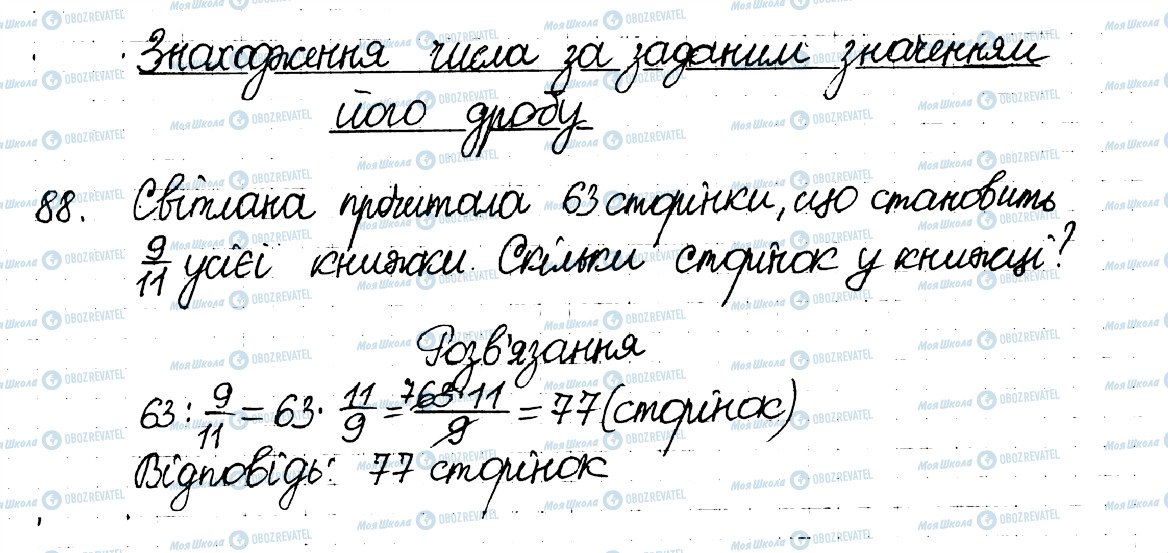 Знаходження числа за заданим значенням
його дробу
88. Світлана прочитала 63 сторінки, що становить
9/11 усієї книжки. Скільки сторінок у книжці?
Розв'язання
63 : 9/11 = 63 · 11/9 = 7 63·11/9 = 77 (сторінок)
Відповідь: 77 сторінок